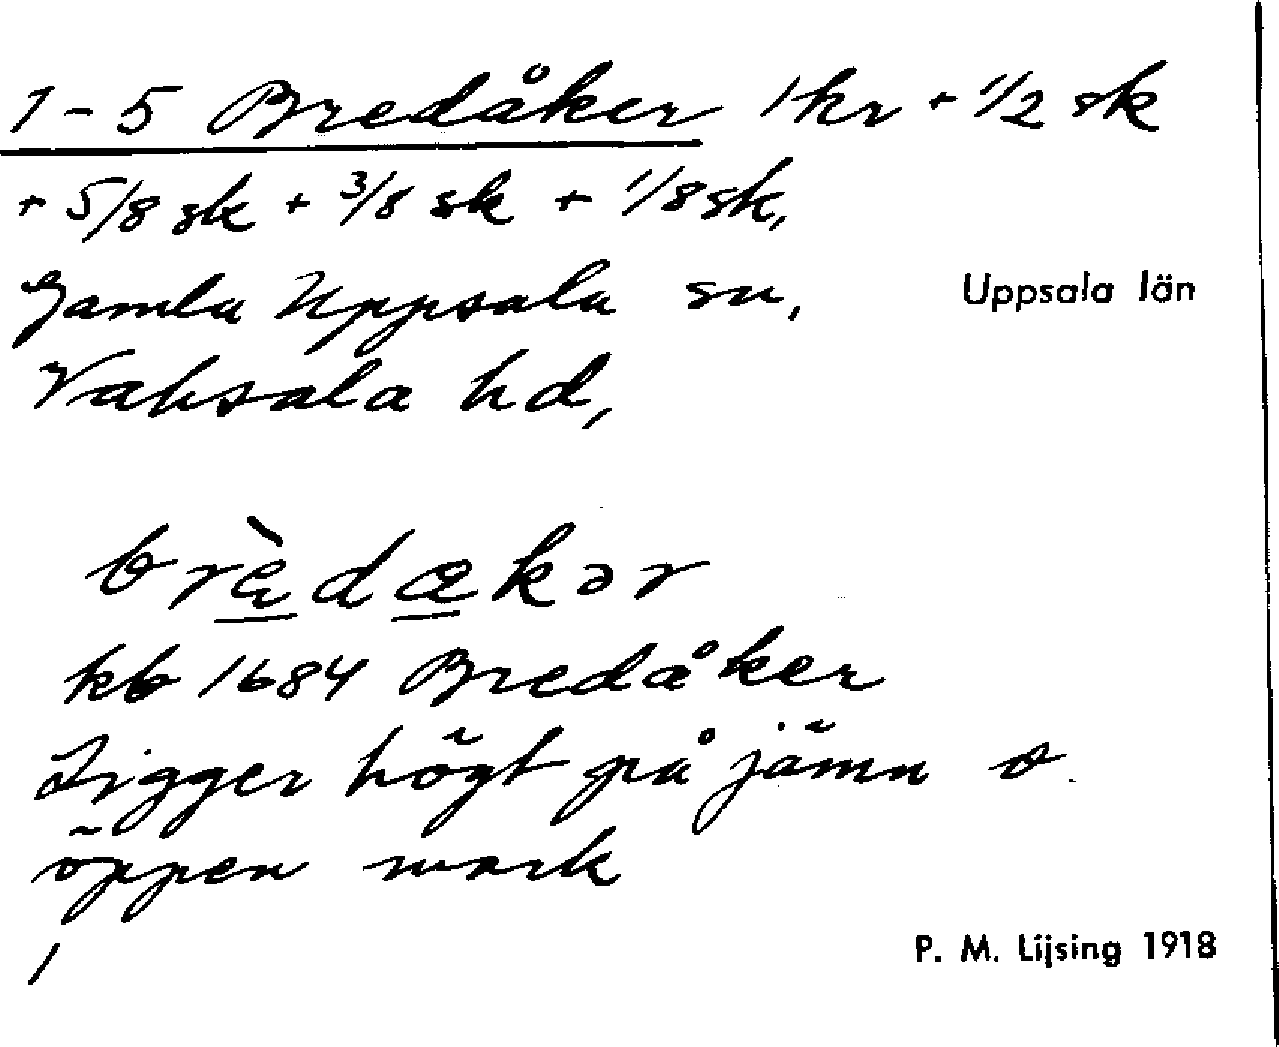 1-5 Bredåker 1 kr + 1/2 sk
+ 5/8 sk + 3/8 sk + 1/8 sk,
Gamla Uppsala sn,
Uppsala län
Vaksala hd,
brèdækər
kb 1684 Bredåker
Ligger högt på jämn o
öppen mark
P. M. Lijsing 1918